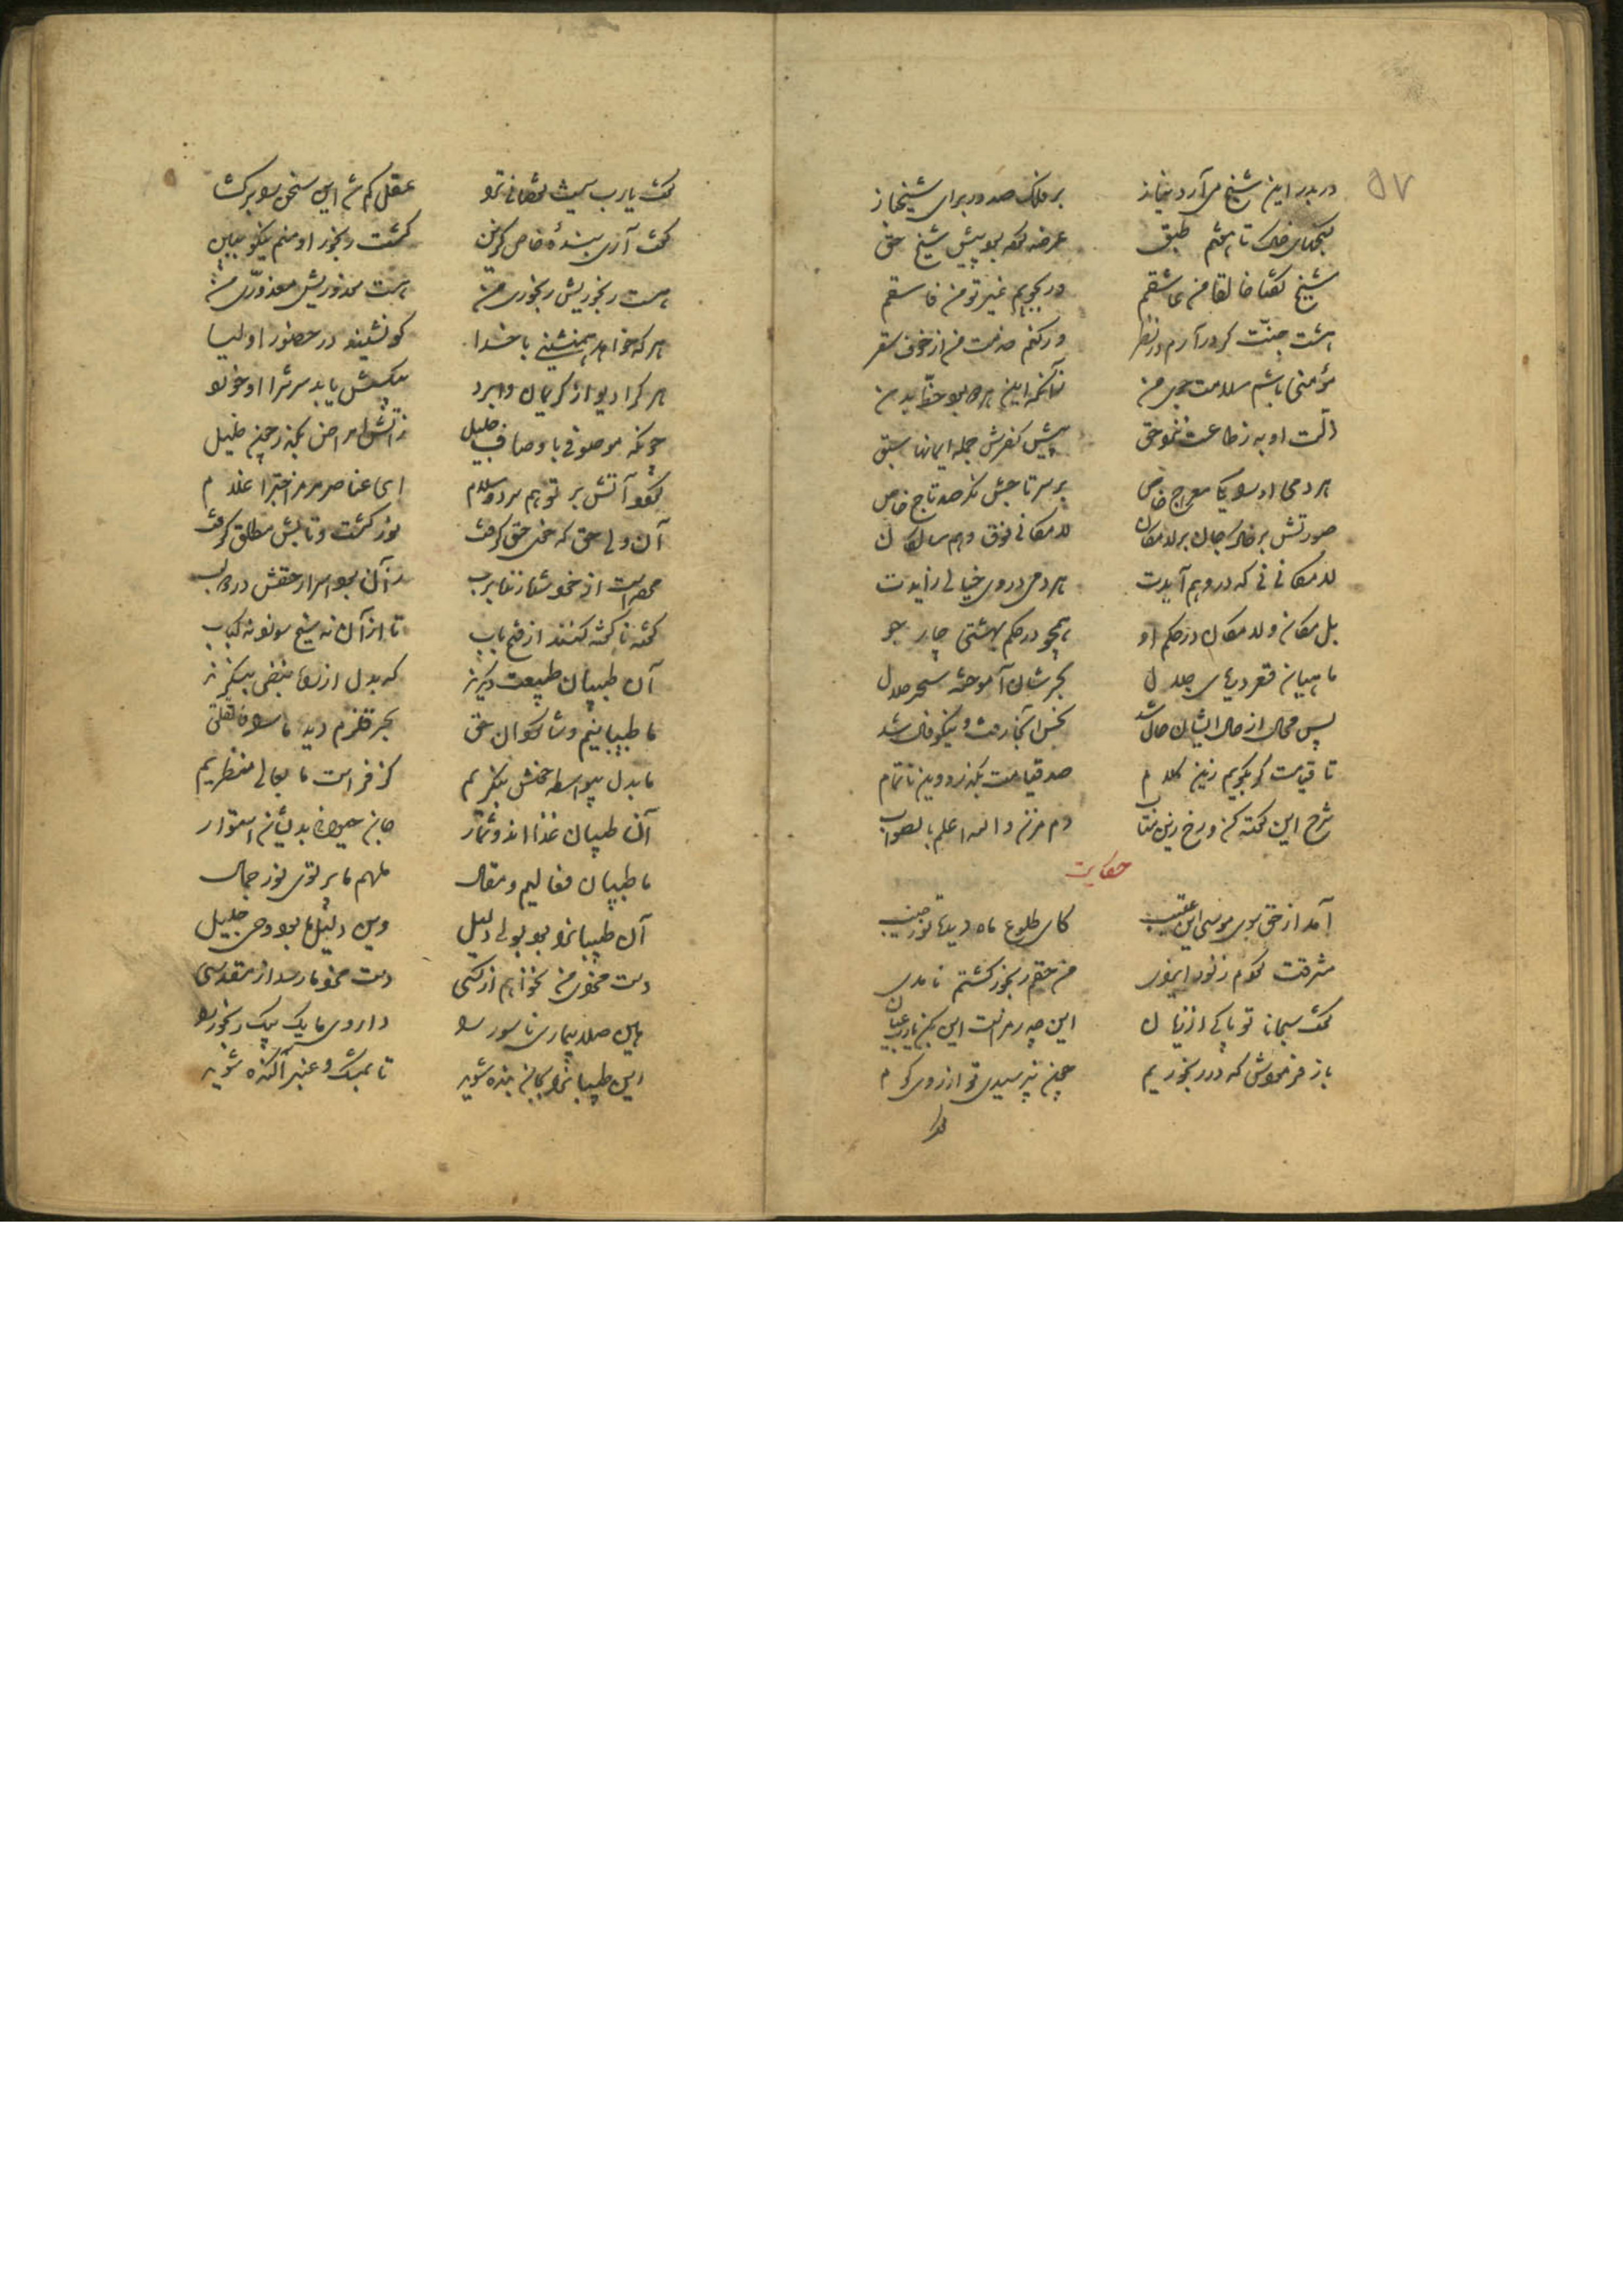 ۵۷
در بدر این شیخ می آرد نیاز بر فلک صد در برای شیخ باز
گنجهای خاک تا هفتم طبق عرضه کرده بود پیش شیخ حق
شیخ گفتا خالقا من عاشقم ور بجویم غیر تو من فاسقم
هشت جنت گر درآرم در نظر ور کنم خدمت من از خوف سقر
مؤمنی باشم سلامت جوی من زانکه این هر دو بود حظ بدن
زلت او به ز طاعت نزد حق پیش کفرش جمله ایمانها سبق
هر دمی او را یکی معراج خاص بر سر تاجش نگر صد تاج خاص
صورتش بر خاک و جان بر لامکان لامکانی فوق وهم سالکان
لامکانی نی که در وهم آیدت هر دمی در وی خیالی زایدت
بل مکان و لامکان در حکم او همچو در حکم بهشتی چار جو
ماهیان قعر دریای جلال بحرشان آموخته سحر حلال
پس محال از حال ایشان حال شد نحس آنجا رفت و نیکو فال شد
تا قیامت گر بگویم زین کلام صد قیامت بگذرد وین ناتمام
شرح این کوته کن و رخ زین بتاب دم مزن والله اعلم بالصواب
حکایت
آمد از حق سوی موسی این عتیب کای طلوع ماه دیده تو ز جیب
مشرقت کردم ز نور ایزدی من حقم رنجور گشتم نامدی
گفت سبحانا تو پاکی از زیان این چه رمزست این بکن یارب عیان
باز فرمودش که در رنجوریم چون نپرسیدی تو از روی کرم
گفت یارب نیست نقصانی ترا عقل گم شد این سخن را برگشا
گفت آری بندهٔ خاص گزین گشت رنجور او منم نیکو ببین
هست رنجوریش رنجوری من هست معذوریش معذوری من
هر که خواهد همنشینی با خدا کو نشیند در حضور اولیا
هر کرا دیو از کریمان وابرد بیکسش یابد سرش را او خورد
چونکه موصوفی باوصاف جلیل ز آتش امراض بگذر چون خلیل
گردد آتش بر تو هم برد و سلام ای عناصر مر مزاجت را غلام
آن ولی حق که خوی حق گرفت نور گشت و تابش مطلق گرفت
آن طبیبان طبیعت دیگرند که بدل از راه نبضی بنگرند
ما طبیبانیم و شاگردان حق بحر قلزم دید ما را فانفلق
ما بدل بیواسطه خوش بنگریم کز فراست ما بعالی منظریم
آن طبیبان غذااند و ثمار جان حیوانی بدیشان استوار
ما طبیبان فعالیم و مقال ملهم ما پرتوی نور جلال
آن طبیبانرا بود بولی دلیل وین دلیل ما بود وحی جلیل
دست مزدی می نخواهیم از کسی دست مزد ما رسد از مقدسی
هین صلا بیماری ناسور را داروی ما یک بیک رنجور را
این طبیبانرا بجان بنده شوید تا بمشک و عنبر آکنده شوید